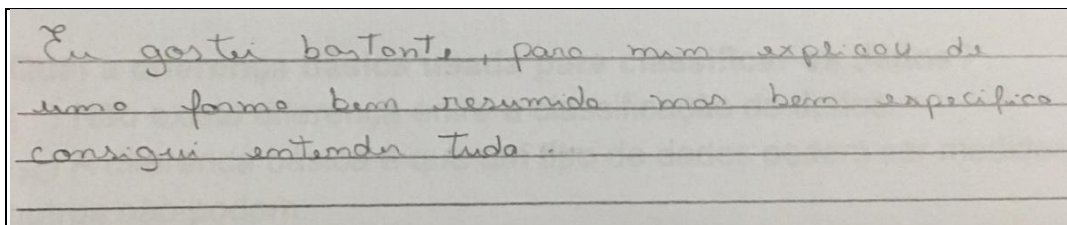 Eu gostei bastante, para mim explicou de
uma forma bem resumida mas bem especifica
consigui entender tudo.